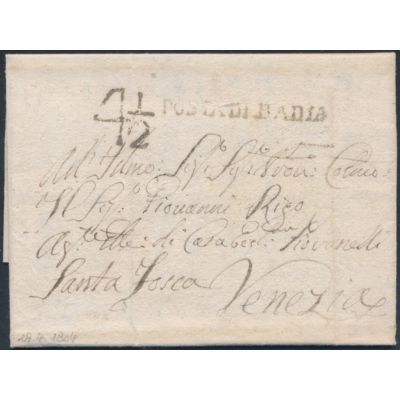 4 1/2 POSTA DI BADIA
All' Illmo: Sigr Sigr
Il Sigr: Giovanni Rigo
Agte delle di Casa Giovanelli
Santa Fosca Venezia
29.4.1804